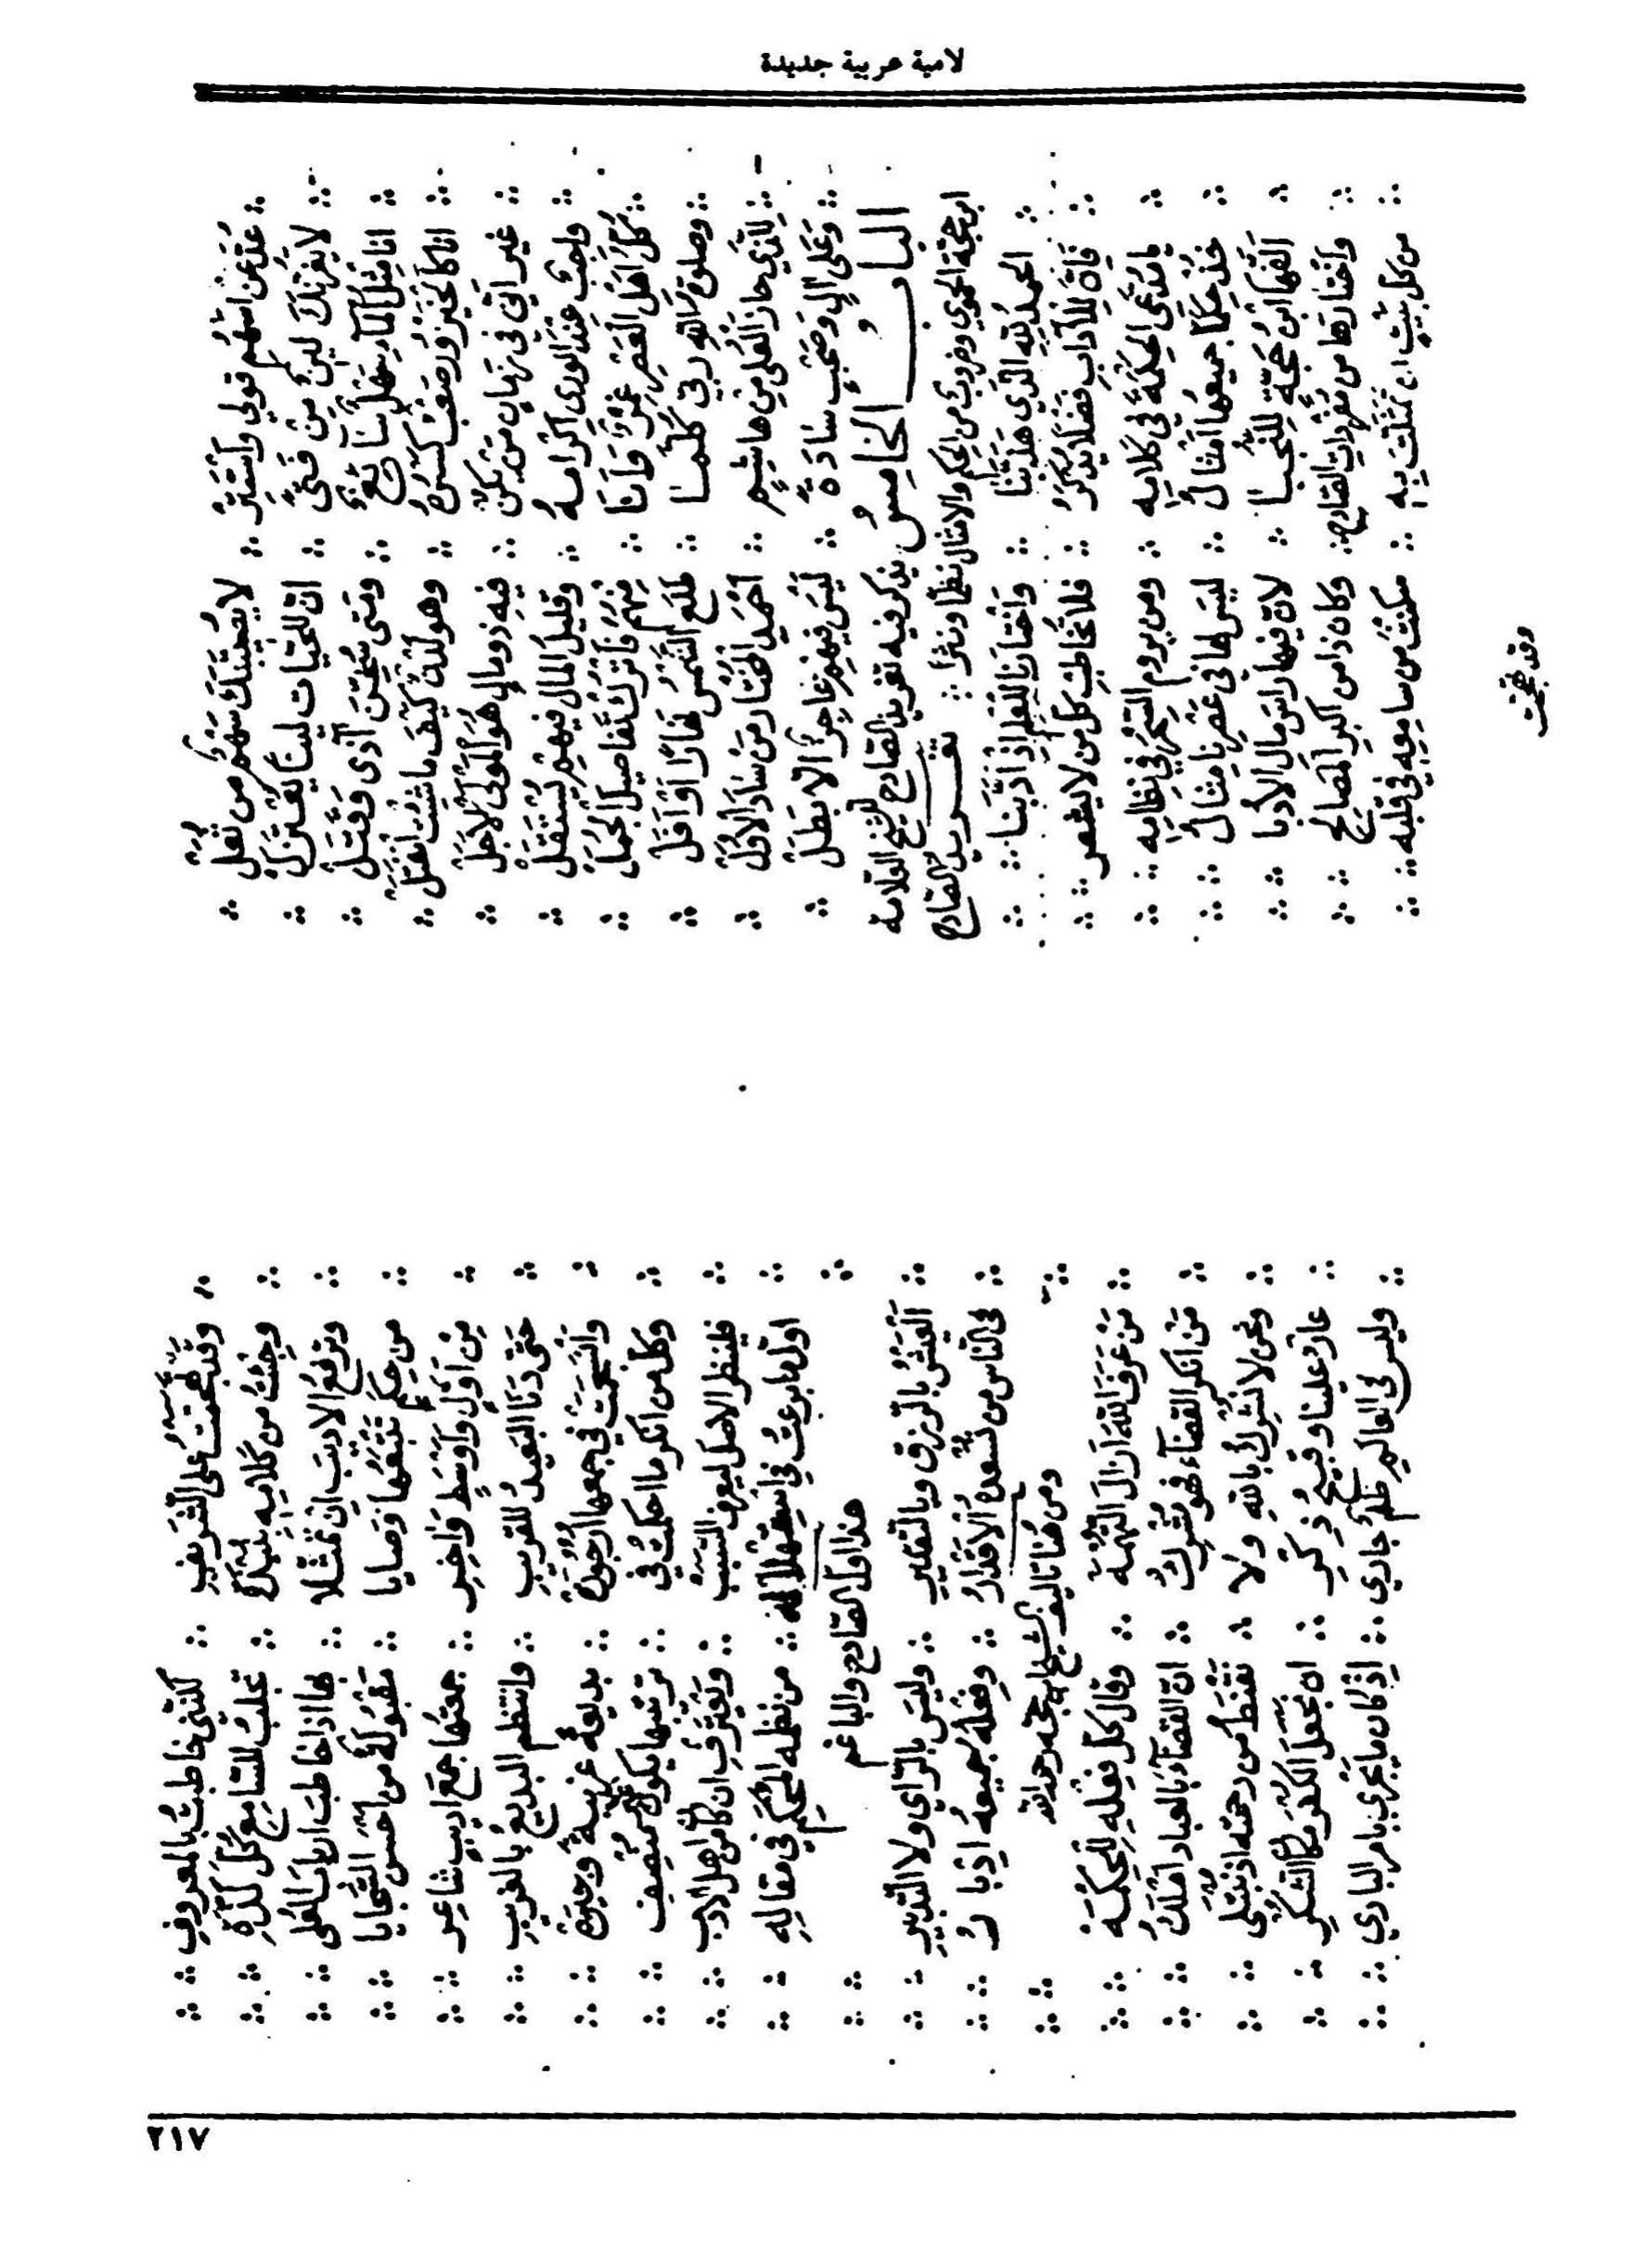 لامية عربية جليلة
عُدَّ عن أسهُم قولي واستتِرْ ∴ لا يُصيبَنَّكَ سهمٌ من ثُعَلْ
لا يَغُرَّنَّكَ لينٌ مِن فَتىً ∴ انّ للحيّات لينًا يُعتزَلْ
انا مِثلُ الماءِ سَهلٌ سآئغٌ ∴ ومتى سُخِّنَ آذى وقَتَلْ
انا كالخَيزورِ صَعبٌ كَسرُهُ ∴ وهو لَدْنٌ كيفَ ما شئتَ انفَتَلْ
غيرَ أنّي في زمانٍ مَن يكن ∴ فيه ذو مالٍ هُوَ المولى الأجَلْ
واجبٌ عِندَ الورى اكرامهُ ∴ وقليلُ المال فيهِم يُستَقَلْ
كُلُّ أهلِ العَصرِ غِمرٌ وَأنَا ∴ مِنهُمُ فاترُكْ تَفاصيلَ الجُمَلْ
وصلوةُ اللهِ ربّي كُلّما ∴ طَلَعَ الشَّمسُ نَهارًا أوْ أفَلْ
لِلّذي حازَ العُلى مِن هاشِمٍ ∴ أحمدَ المُختارِ مَن سادَ الأوَلْ
وَعَلى آلٍ وَصَحبٍ سَادَةٍ ∴ لَيسَ فيهِم عاجِزٌ الّا بَطَلْ
البابُ الخامِسُ يذكر فيه تغريد الصادح للشيخ العلامة
ابن حجة الحموي وضروب من الحِكم والامثال نظمًا ونثرًا ∴ تغريد الصادح
الحمدُ للهِ الّذي هَذَّبَنا ∴ واختارَنا للعِلمِ إذ أدَّبَنا
فَإنّ للآدابِ فَضلًا يُذكَرُ ∴ فلا تُخاطِب كلّ من لا يشعر
يا مُدّعي الحِكمةِ في كلامِه ∴ ومن يروم السِّحرَ في نظامِه
خُذ حِكَمًا جميعُها أمثالُ ∴ ليسَ لها في عَصرِنا مِثالُ
ألّفَها ابنُ حُجّةٍ للنُّجَبا ∴ لانّ فيها رأسَ مالِ الأدبا
واختارَها من مُفرداتِ الصادح ∴ وكان ذا من اكبرِ المَصالح
من كل بيتٍ ان تمثّلتَ بهِ ∴ سكنتَ من سامعِهِ في قلبه
وقد فتحت
وقد فتحتُ على الشَّريفِ ∴ لكنّني خاطبتُ بالمعروفِ
وجئتُ من كلامِه بنُبذَه ∴ تجلبُ للسّامعِ كُلَّ لَذّه
وترفعُ الاديبَ إن تمثّلا ∴ بها اذا خاطبَ اربابَ العُلى
من حِكَمٍ تَتبَعُها وَصايا ∴ مقبولةٌ من أحسنِ السَّجايا
مِن أوّلٍ وأوسَطٍ وآخِرِ ∴ جمعتُها جمعَ اديبٍ شاعِرِ
حَتّى دَنا البَعيدُ للقريبِ ∴ وانتَظمَ البديعُ بالغريبِ
وانسَجَمَت في جمعِها أرجوزَه ∴ بديعةٌ غريبةٌ وجيزَه
وكلّ من انكر ما احكمتُ في ∴ ترتيبها يكون غير مُنصِفِ
فلينظرِ الاصلَ ليعرفَ السَّبَب ∴ ويَعترِف ان كان من اهلِ الأدب
اوّل ما برعتُ في استِهلالِه ∴ من نظمِه المُحكَمِ في مقالِهِ
هذا اول الصادح والباغم
العَيشُ بالرّزقِ وبالتقديرِ ∴ وليسَ بالرّأيِ ولا التّدبيرِ
في النّاسِ مَن تُسعِدُهُ الأقدارُ ∴ وفِعلُهُ جَميعُهُ إدبارُ
ومن هُنا تاليفُ الشيخ ابن حجّه رحمه الله
مَن عَرَفَ اللهَ أزالَ التُّهمَه ∴ وقالَ كلُّ فِعلِهِ لِلحِكمَه
مَن أنكرَ القضآءَ فهو مُشرِكُ ∴ إنّ القضآءَ بالعبادِ أملَكُ
ونحنُ لا نُشرِكُ باللهِ ولا ∴ نَقنَطُ من رحمتِه إذ نُبتَلى
عارٌ علينا وقبيحٌ ذِكرِ ∴ ان نجعلَ الكُفرَ مكانَ الشُّكرِ
وليسَ في العالَمِ ظُلمٌ جاري ∴ إذ كان ما يَجري بامرِ الباري
٢١٧